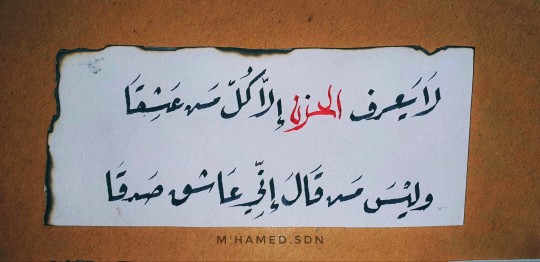 لَا يَعرف الحزن إلّا كُلّ من عَشِقَا
وليْسَ من قَالَ إنِّي عَاشق صَدقَا
M'HAMED.SDN